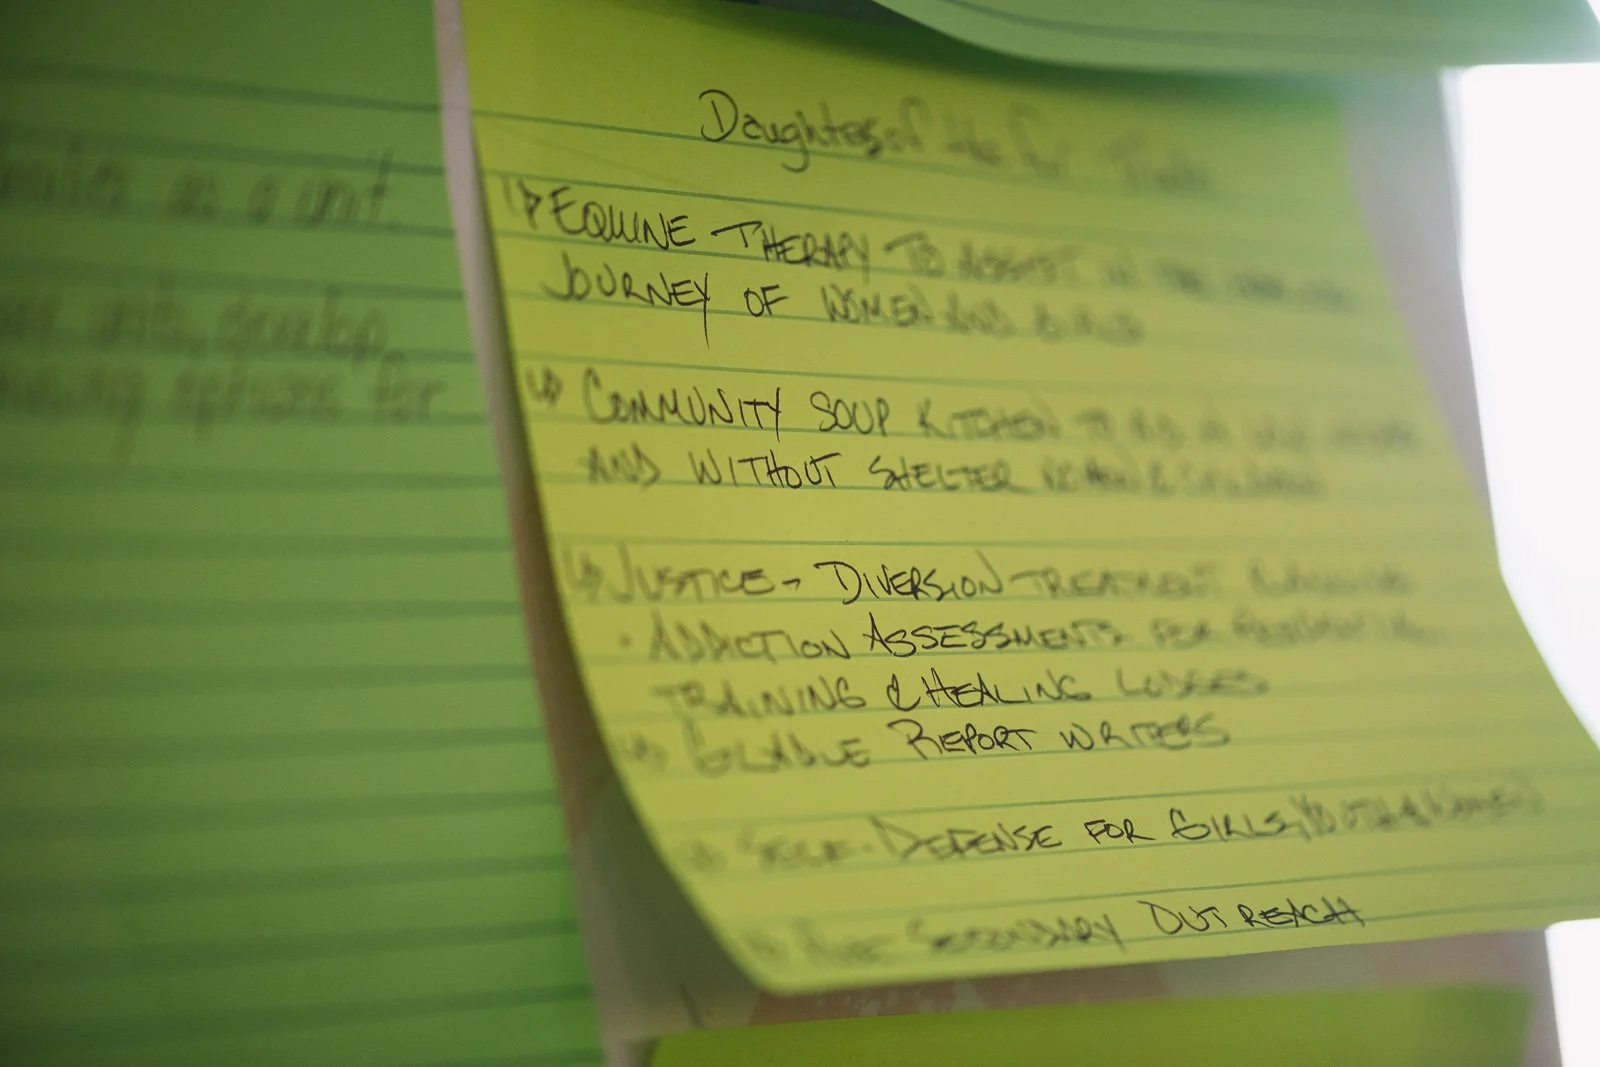 as a unit.
units, develop,
options for
Daughters of the
EQUINE THERAPY TO ASSIST IN THE
JOURNEY OF WOMEN AND GIRLS
COMMUNITY SOUP KITCHEN TO
AND WITHOUT SHELTER WOMEN & CHILDREN
JUSTICE - DIVERSION TREATMENT
• ADDICTION ASSESSMENTS FOR RESIDENTIAL
TRAINING & HEALING LODGES
GLADUE REPORT WRITERS
SELF-DEFENSE FOR GIRLS, YOUTH & WOMEN
POST SECONDARY OUTREACH